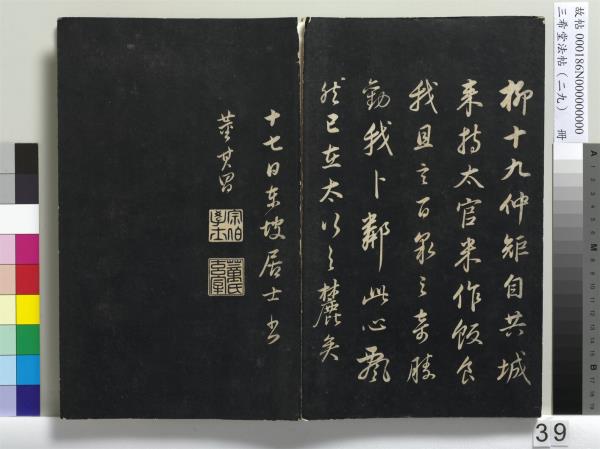 柳十九仲矩自共城
来持太官米作飯食
我且言百泉之奇勝
勸我卜鄰此心飄
然已在太行之麓矣
十七日東坡居士書
董其昌
宗伯學士
董氏玄宰
故帖 000186N000000000
三希堂法帖（二九） 冊
39